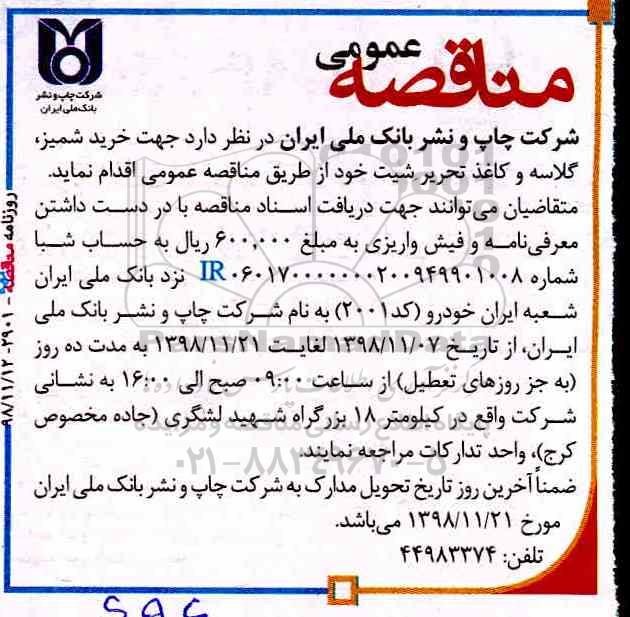 مناقصه عمومی
شرکت چاپ و نشر
بانک ملی ایران
شرکت چاپ و نشر بانک ملی ایران در نظر دارد جهت خرید شمیز،
گلاسه و کاغذ تحریر شیت خود از طریق مناقصه عمومی اقدام نماید.
متقاضیان می‌توانند جهت دریافت اسناد مناقصه با در دست داشتن
معرفی‌نامه و فیش واریزی به مبلغ ۶۰۰,۰۰۰ ریال به حساب شبا
شماره IR ۰۶۰۱۷۰۰۰۰۰۰۰۰۲۰۰۹۴۹۹۰۱۰۰۸ نزد بانک ملی ایران
شعبه ایران خودرو (کد۲۰۰۱) به نام شرکت چاپ و نشر بانک ملی
ایران، از تاریخ ۱۳۹۸/۱۱/۰۷ لغایت ۱۳۹۸/۱۱/۲۱ به مدت ده روز
(به جز روزهای تعطیل) از ساعت ۰۹:۰۰ صبح الی ۱۶:۰۰ به نشانی
شرکت واقع در کیلومتر ۱۸ بزرگراه شهید لشگری (جاده مخصوص
کرج)، واحد تدارکات مراجعه نمایند.
ضمناً آخرین روز تاریخ تحویل مدارک به شرکت چاپ و نشر بانک ملی ایران
مورخ ۱۳۹۸/۱۱/۲۱ می‌باشد.
تلفن: ۴۴۹۸۳۳۷۴
روزنامه مناقصه - ۲۹۰۱- ۹۸/۱۱/۱۲
ParsNamadData
پایگاه اطلاع رسانی مناقصه و مزایده
۰۲۱-۸۸۳۴۹۶۷۰-۵